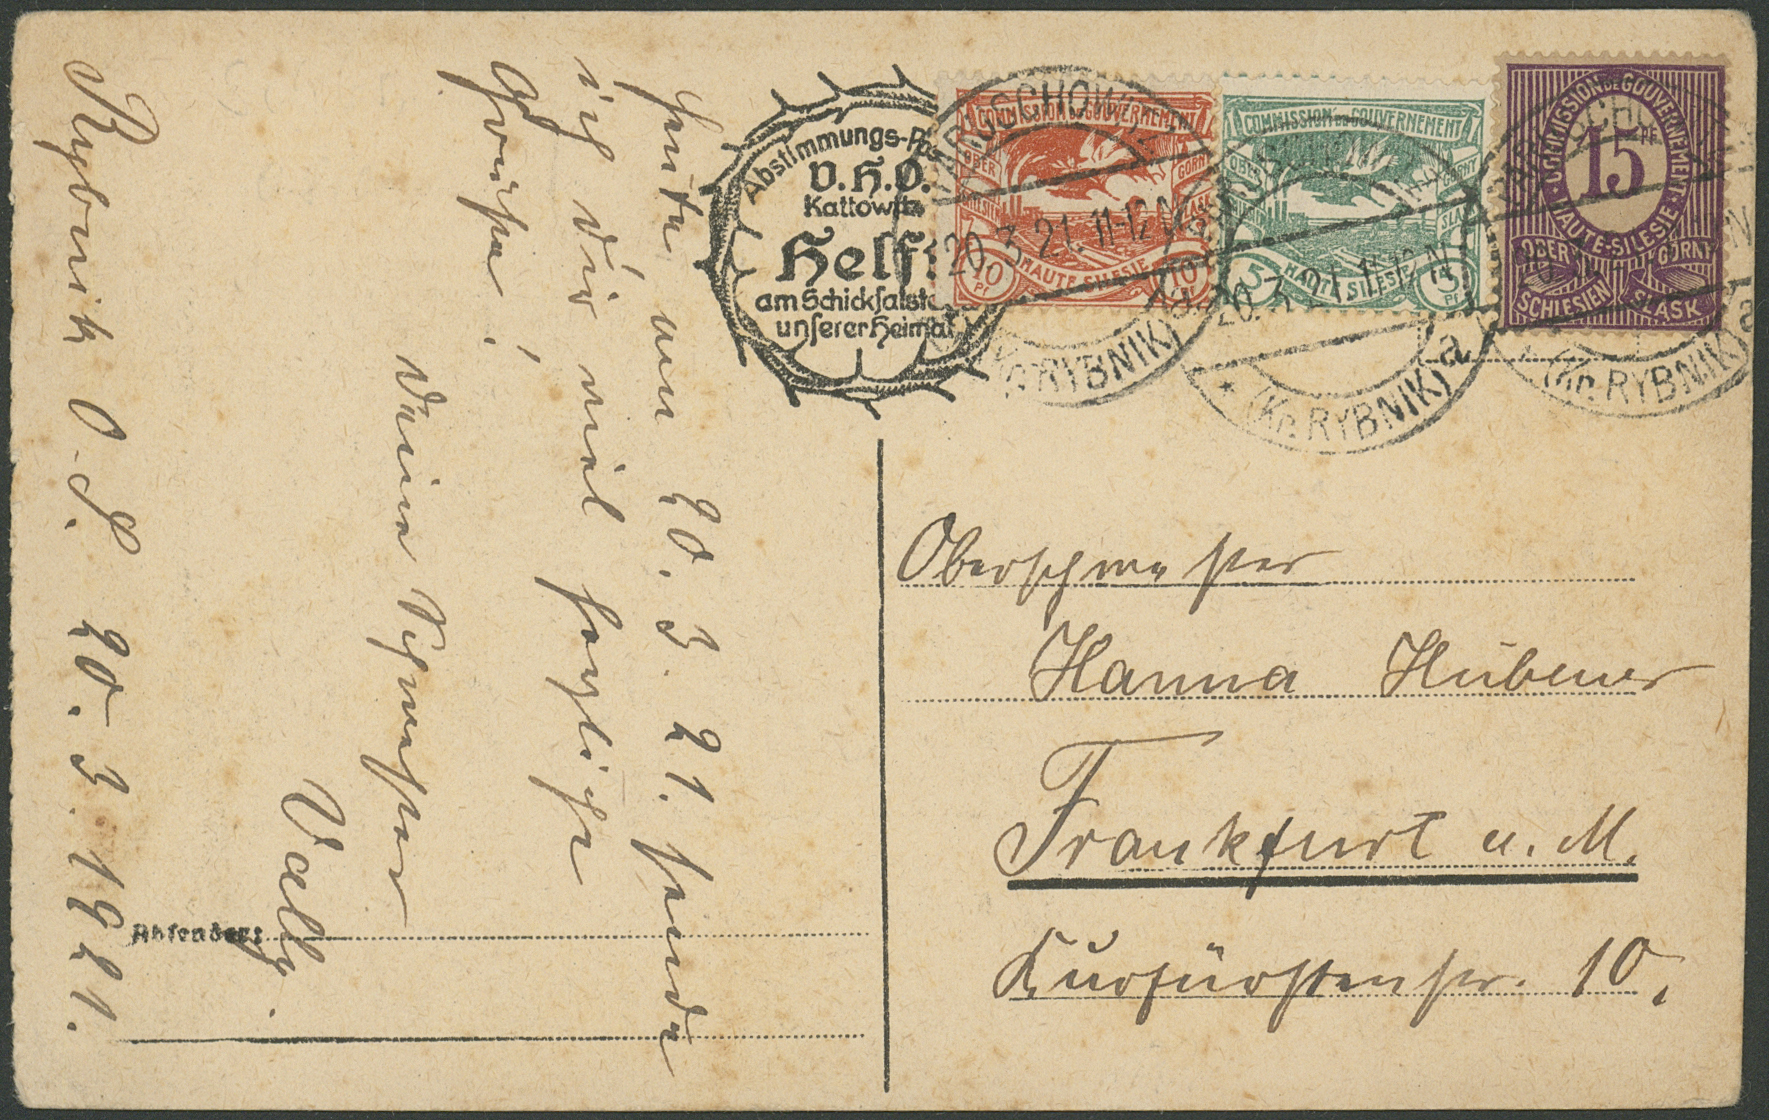 Rybnik O.-S. 20.3.1921.
Heute am 20.3.21. sende
ich dir viel herzliche
Grüße!
Deine Schwester
Vally.
Absender:
Abstimmungs-
V.H.O.
Kattowitz
Helft
am Schicksalst
unserer Heimat
COMMISSION DE GOUVERNEMENT
OBER GORNY
SLASK
HAUTE SILESIE
10 Pf 10
COMMISSION DE GOUVERNEMENT
OBER GORNY
SLASK
HAUTE SILESIE
5 Pf 5 Pf
COMMISSION DE GOUVERNEMENT
15 PF
HAUTE-SILESIE
OBER GORNY
SCHLESIEN SLASK
20.3.21.11-12N
(Kr. RYBNIK)
20.3.21.11-12N
(Kr. RYBNIK) a
(Kr. RYBNIK) a
Oberschwester
Hanna Hübener
Frankfurt a. M.
Kurfürstenstr. 10,